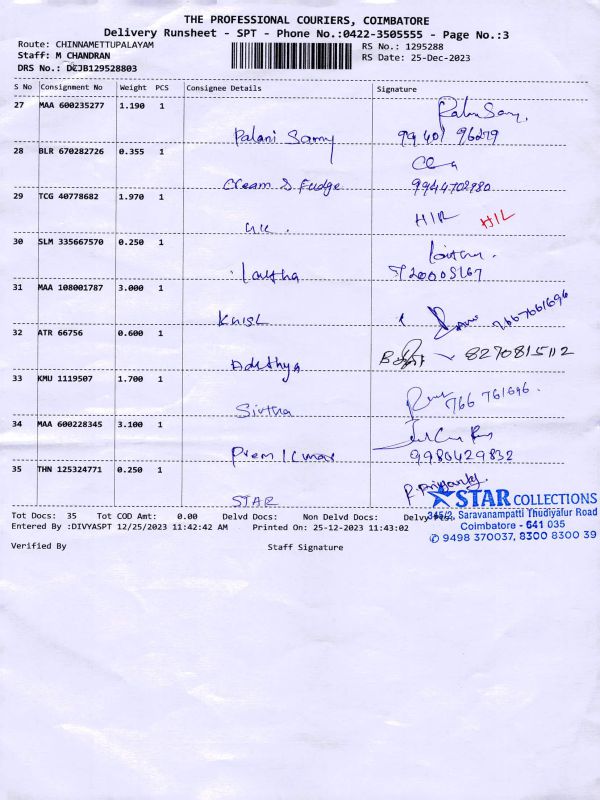 THE PROFESSIONAL COURIERS, COIMBATORE
Delivery Runsheet - SPT - Phone No.:0422-3505555 - Page No.:3
Route: CHINNAMETTUPALAYAM
RS No.: 1295288
Staff: M CHANDRAN
RS Date: 25-Dec-2023
DRS No.: DCJB129528803
S No Consignment No Weight PCS Consignee Details Signature
27 MAA 600235277 1.190 1
Palani Samy 99401 96279
28 BLR 670282726 0.355 1
Cream & Fudge 9944702980
29 TCG 40778682 1.970 1
H/L
30 SLM 335667570 0.250 1
31 MAA 108001787 3.000 1
7667661696
32 ATR 66756 0.600 1
8270815112
33 KMU 1119507 1.700 1
766 761696
34 MAA 600228345 3.100 1
Prem Kumar 9980429832
35 THN 125324771 0.250 1
STAR
STAR COLLECTIONS
345/2, Saravanampatti Thudiyalur Road
Coimbatore - 641 035
✆ 9498 370037, 8300 8300 39
Tot Docs: 35 Tot COD Amt: 0.00 Delvd Docs: Non Delvd Docs:
Entered By :DIVYASPT 12/25/2023 11:42:42 AM Printed On: 25-12-2023 11:43:02
Verified By Staff Signature